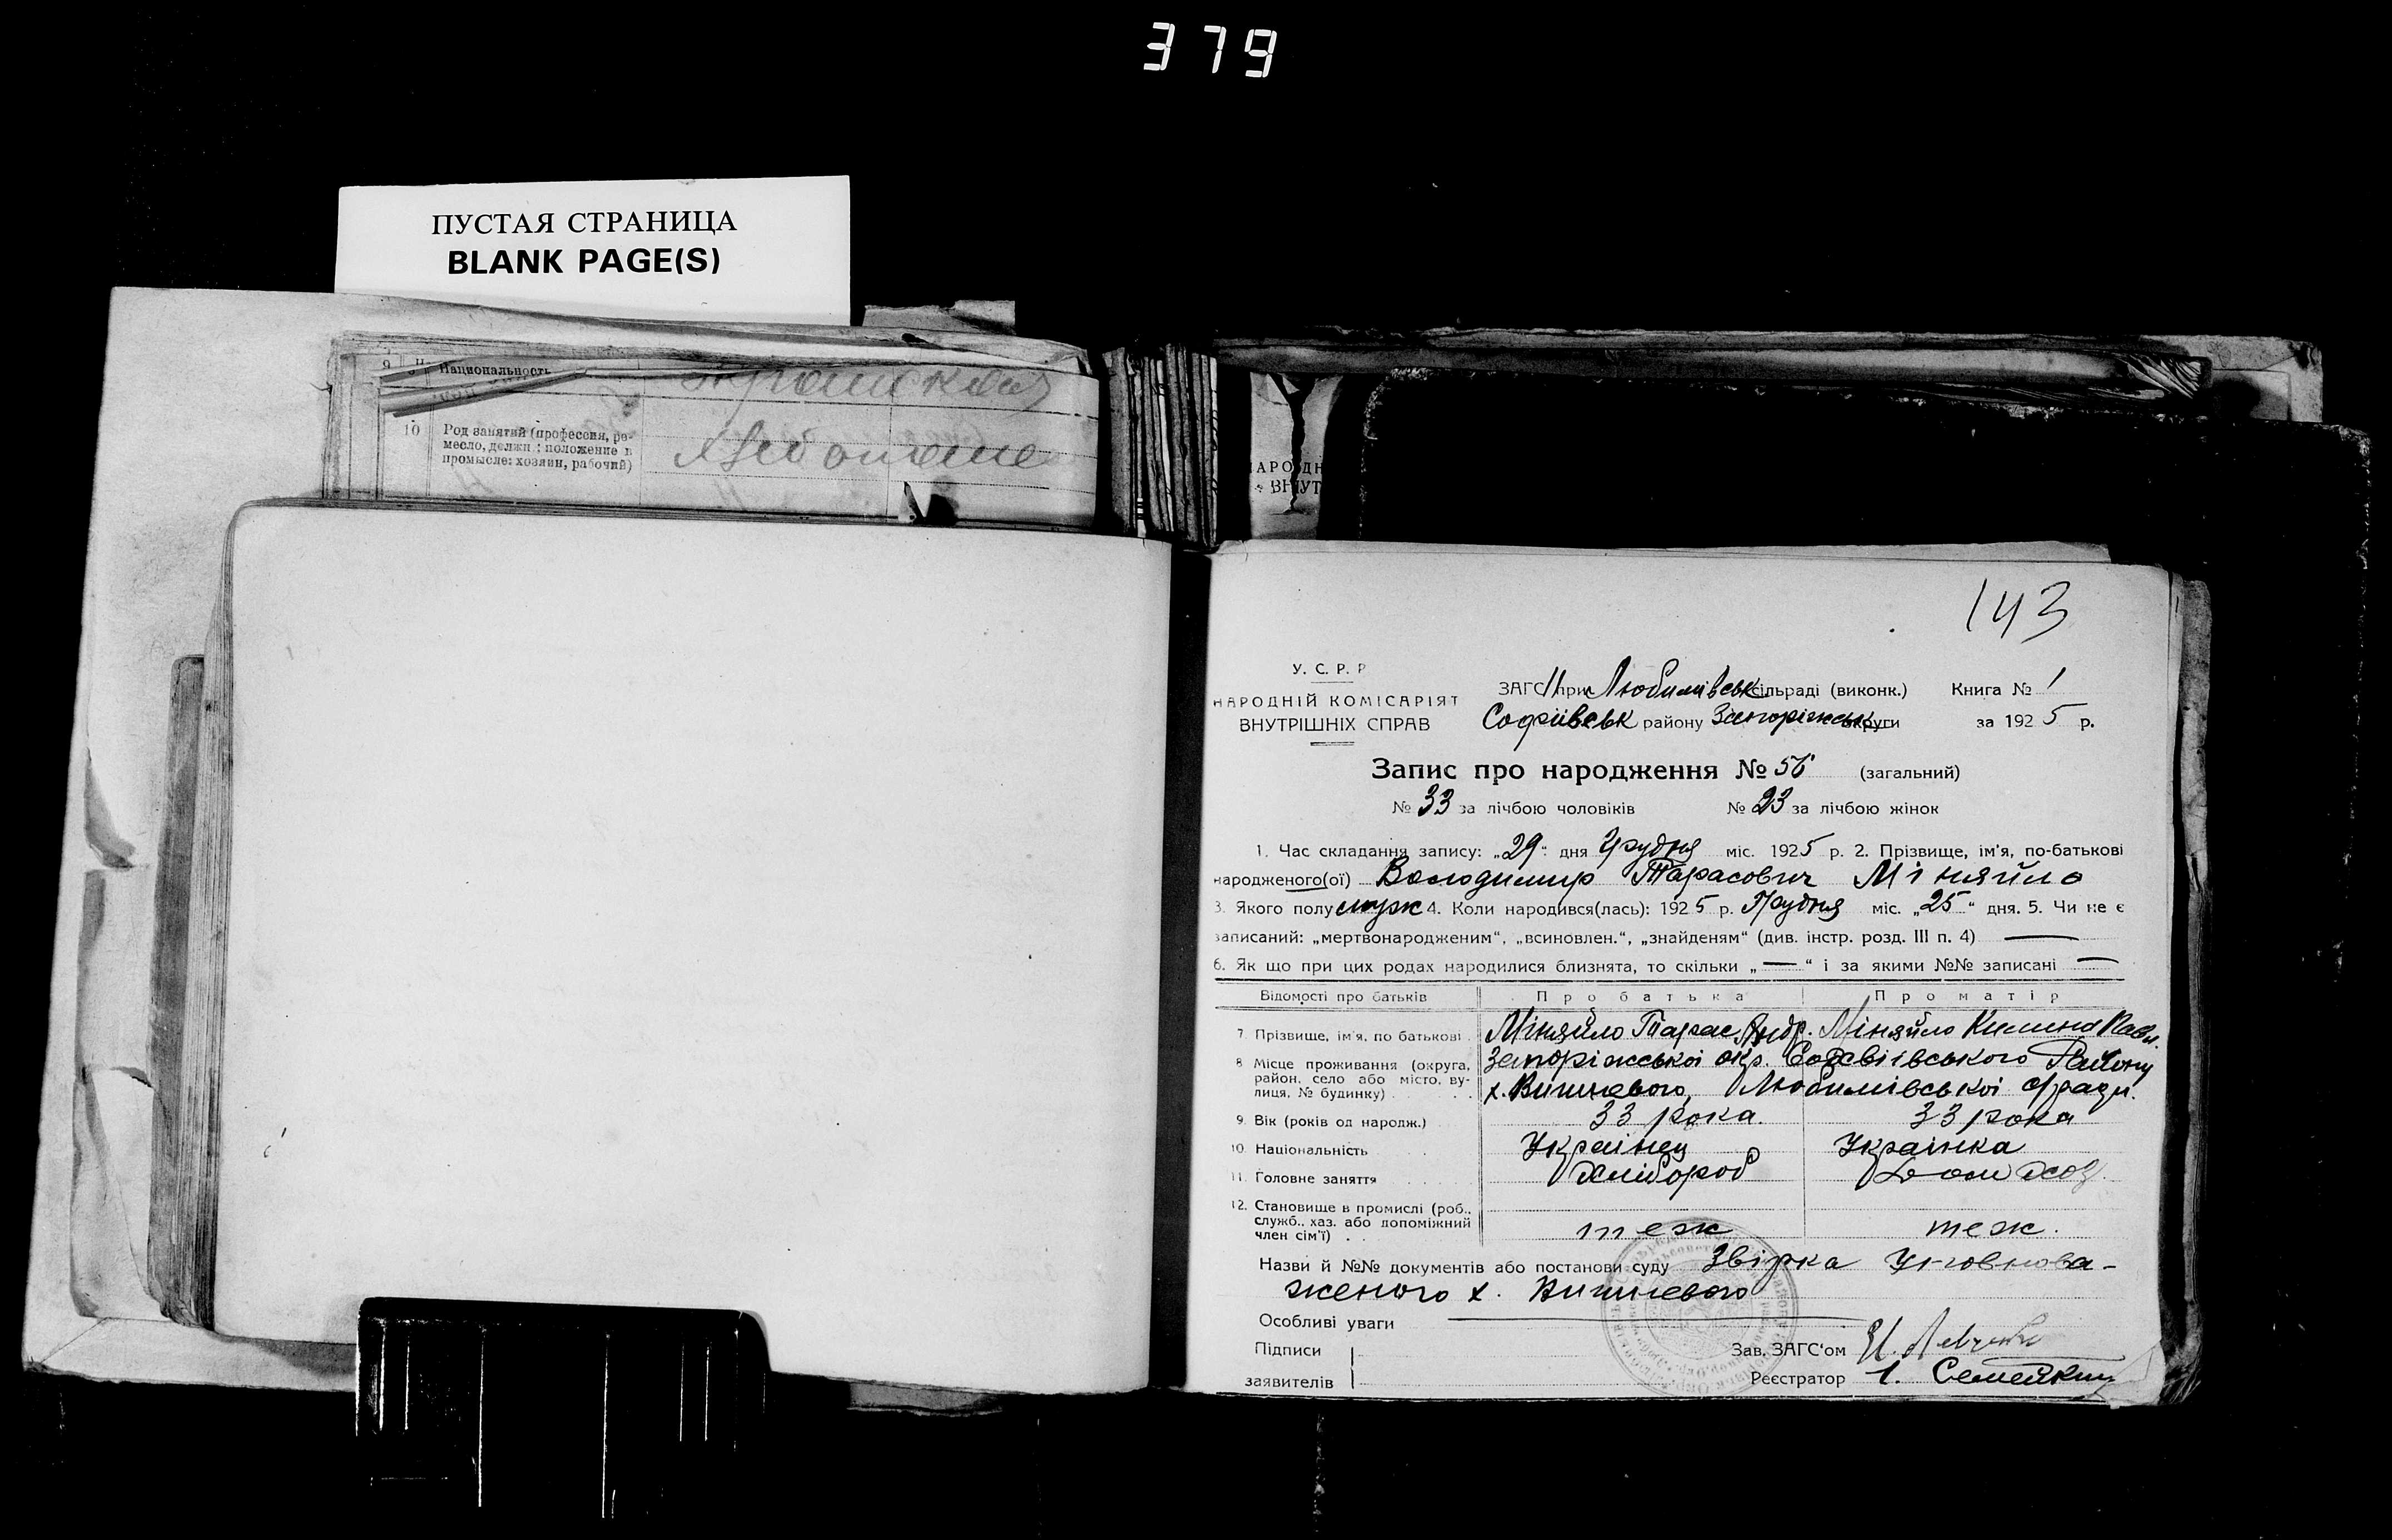 379
ПУСТАЯ СТРАНИЦА
BLANK PAGE(S)
9 Национальность
10 Род занятий (профессия, ре-
месло, должн.; положение в
промысле: хозяин, рабочий)
НАРОДН
ВНУТ
143
У. С. Р. Р
НАРОДНІЙ КОМІСАРІЯТ
ВНУТРІШНІХ СПРАВ
ЗАГС при Любимівськ сільраді (виконк.) Книга № 1
Софіївськ району Запоріжськ округи за 1925 р.
Запис про народження № 56 (загальний)
№ 33 за лічбою чоловіків № 23 за лічбою жінок
1. Час складання запису: „29“ дня Грудня міс. 1925 р. 2. Прізвище, ім'я, по-батькові
народженого(ої) Володимир Тарасович Міняйло
3. Якого полу муж 4. Коли народився(лась): 1925 р. Грудня міс. „25“ дня. 5. Чи не є
записаний: „мертвонародженим“, „всиновлен.“, „знайденям“ (див. інстр. розд. III п. 4) —
6. Як що при цих родах народилися близнята, то скільки „—“ і за якими №№ записані —
Відомості про батьків Про батька Про матір
7. Прізвище, ім'я, по батькові Міняйло Тарас Андр. Міняйло Килина Павл.
8 Місце проживання (округа, район, село або місто, ву-
лиця, № будинку) Запоріжської окр. Софіївського Району
х. Вишневого, Любимівської с/ради.
9. Вік (років од народж.) 33 рока. 33 рока
10. Національність Українец Українка
11. Головне заняття Хлібороб Дом хоз.
12. Становище в промислі (роб.,
служб., хаз. або допоміжний
член сім'ї) теж теж.
Назви й №№ документів або постанови суду Звірка Уповнова-
женого х. Вишневого
Особливі уваги —
Підписи Зав. ЗАГС'ом
заявителів Реєстратор І. Семейкин